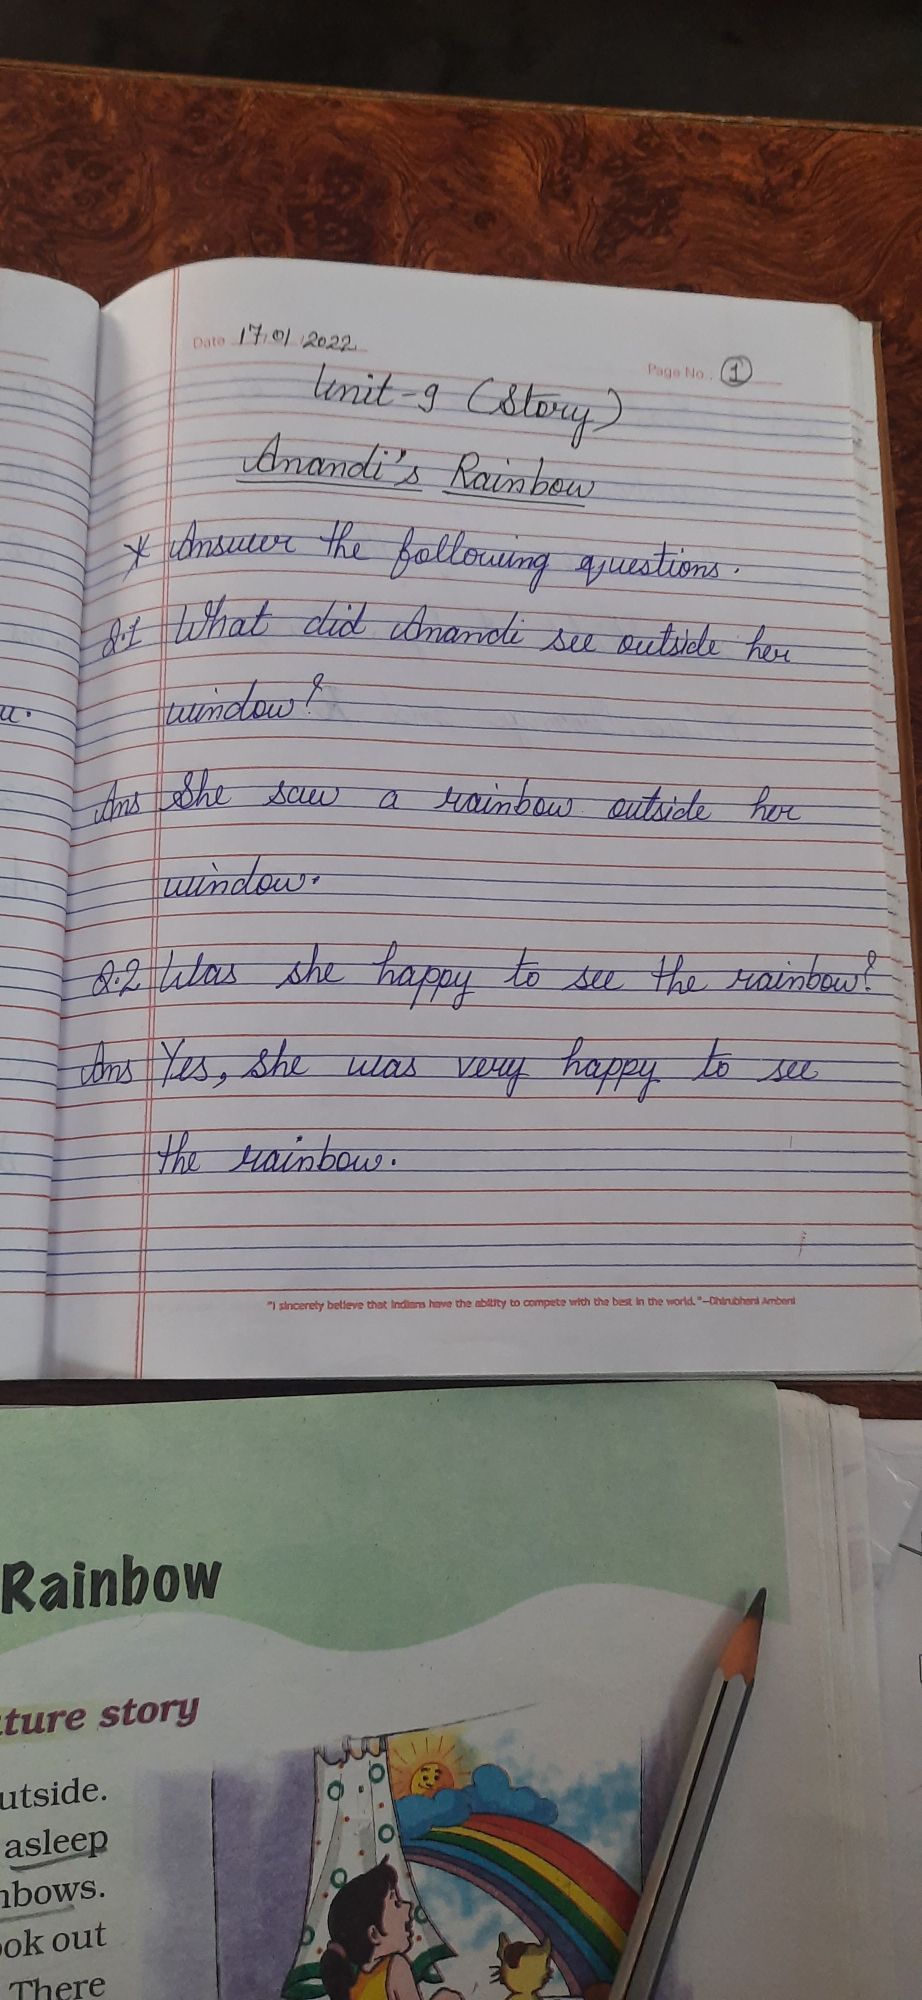 Date 17/01/2022
Page No. 1
Unit-9 (Story)
Anandi's Rainbow
* Answer the following questions.
Q.1 What did Anandi see outside her
window?
Ans She saw a rainbow outside her
window.
Q.2 Was she happy to see the rainbow?
Ans Yes, she was very happy to see
the rainbow.
"I sincerely believe that Indians have the ability to compete with the best in the world."–Dhirubhani Ambani
Rainbow
ture story
utside.
asleep
nbows.
ook out
There